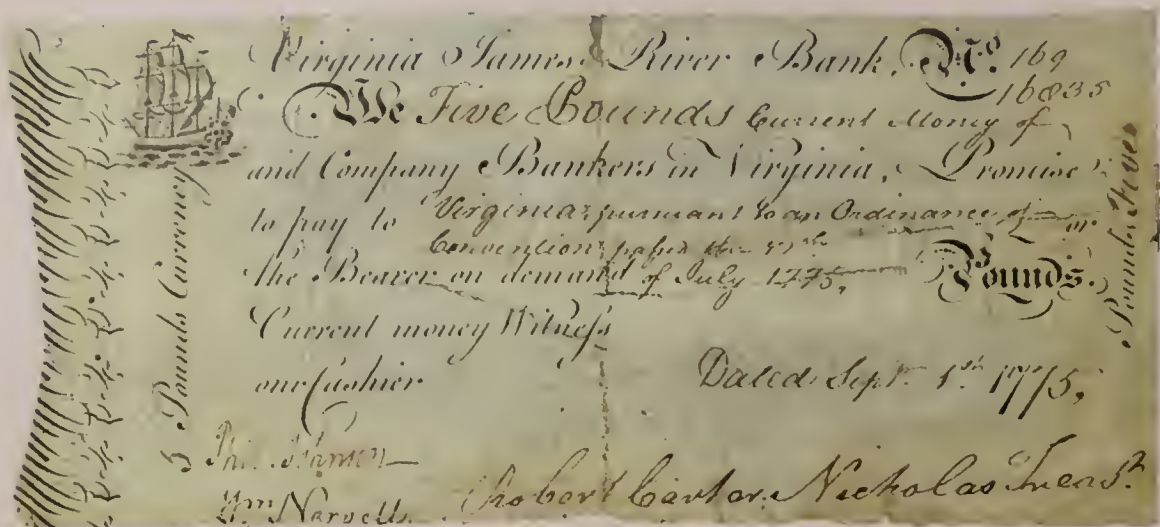 Virginia James River Bank, No. 169
16835
We Five Pounds Current Money of
and Company Bankers in Virginia, Promise
to pay to Virginia, pursuant to an Ordinance of or
Convention passd the
the Bearer on demand of July 1775, Pounds.
Current money Witness
our Cashier
Dated Sepr. 1st. 1775,
Wm. Norvell. Robert Carter Nicholas Treasr.
5 Pounds Currency
Pounds Five